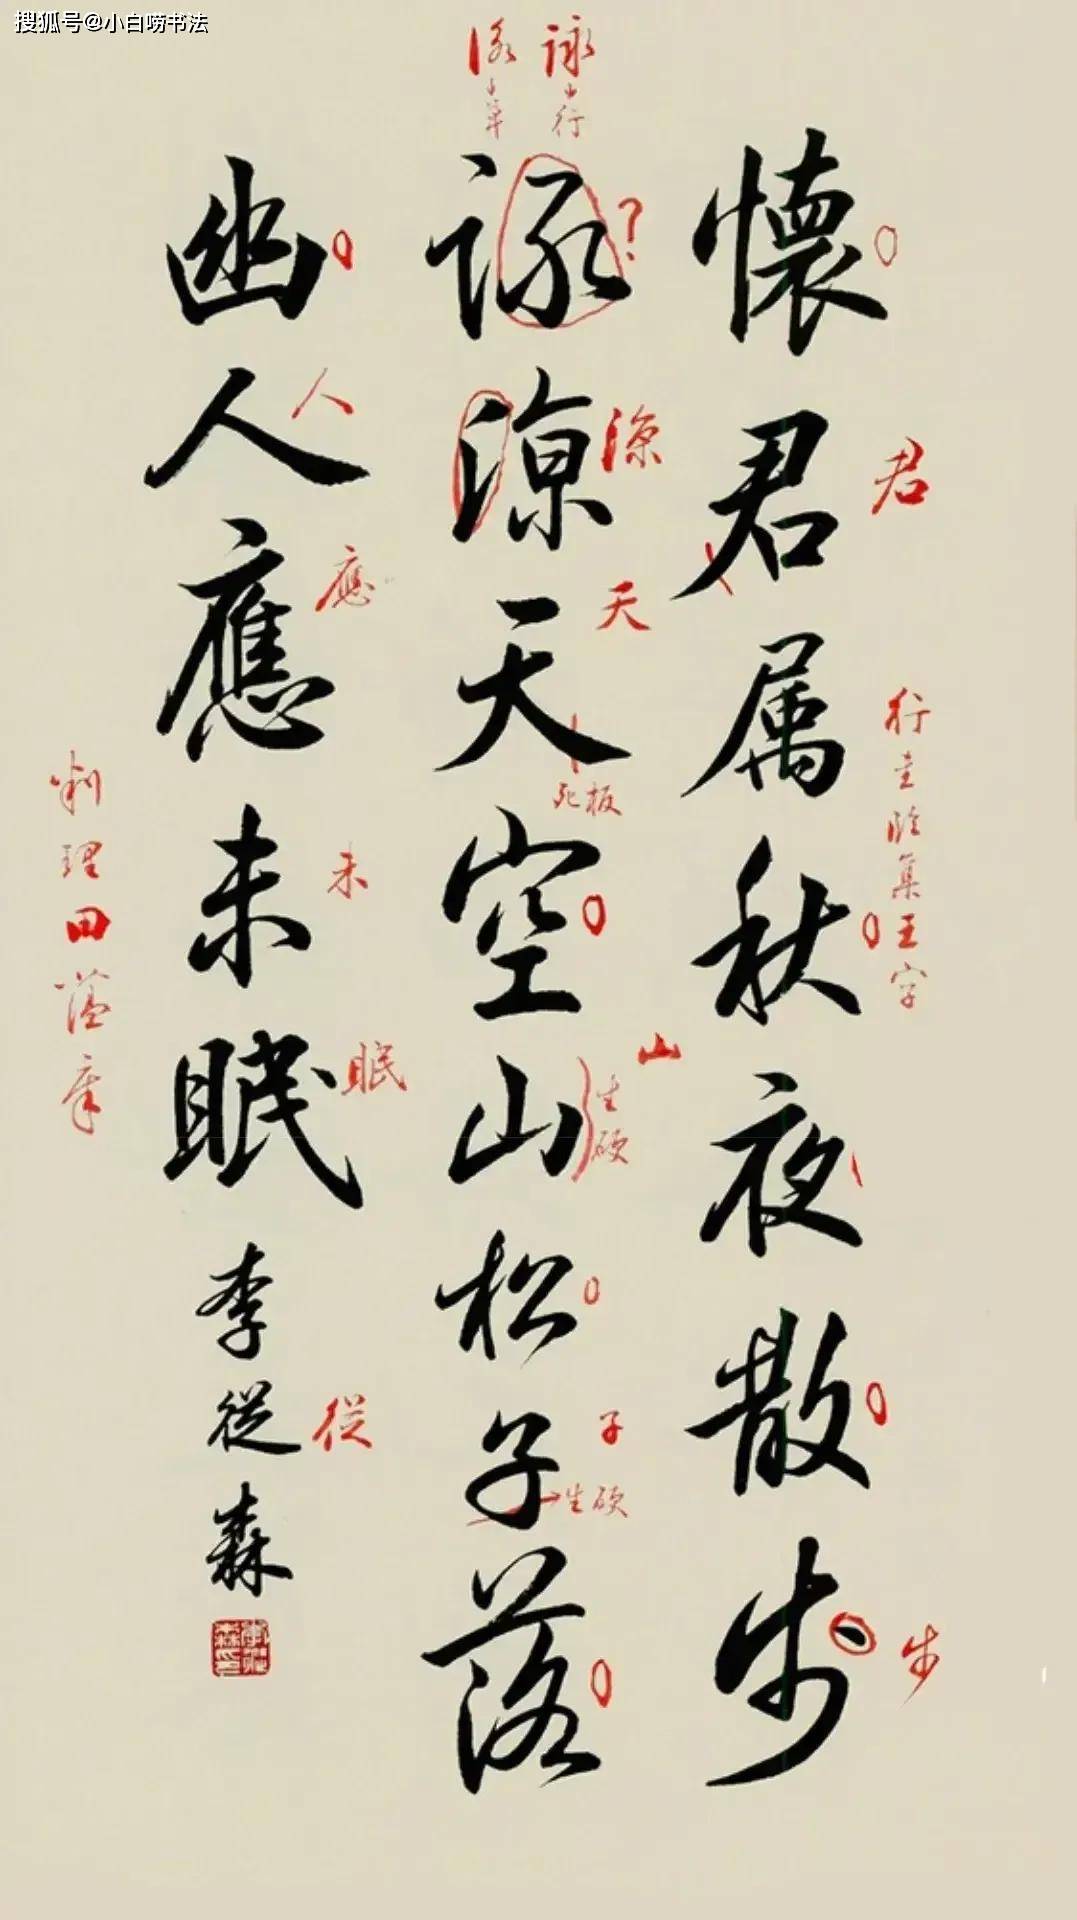 搜狐号@小白唠书法
懷君属秋夜散步
詠涼天空山松子落
幽人應未眠
李從森
詠 小行
小草
君
行圭临集王字
步
涼
天
死板
山
生硬
子
生硬
人
應
未
眠
從